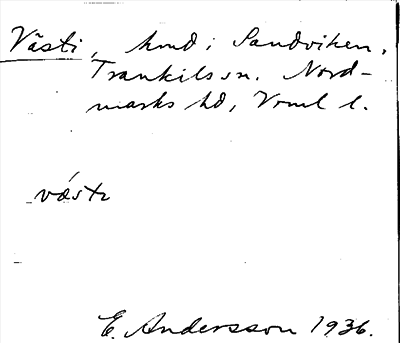 Västi, hmd i Sandviken,
Trankils sn. Nord-
marks hd, Vrml l.
vásti
E. Andersson 1936.